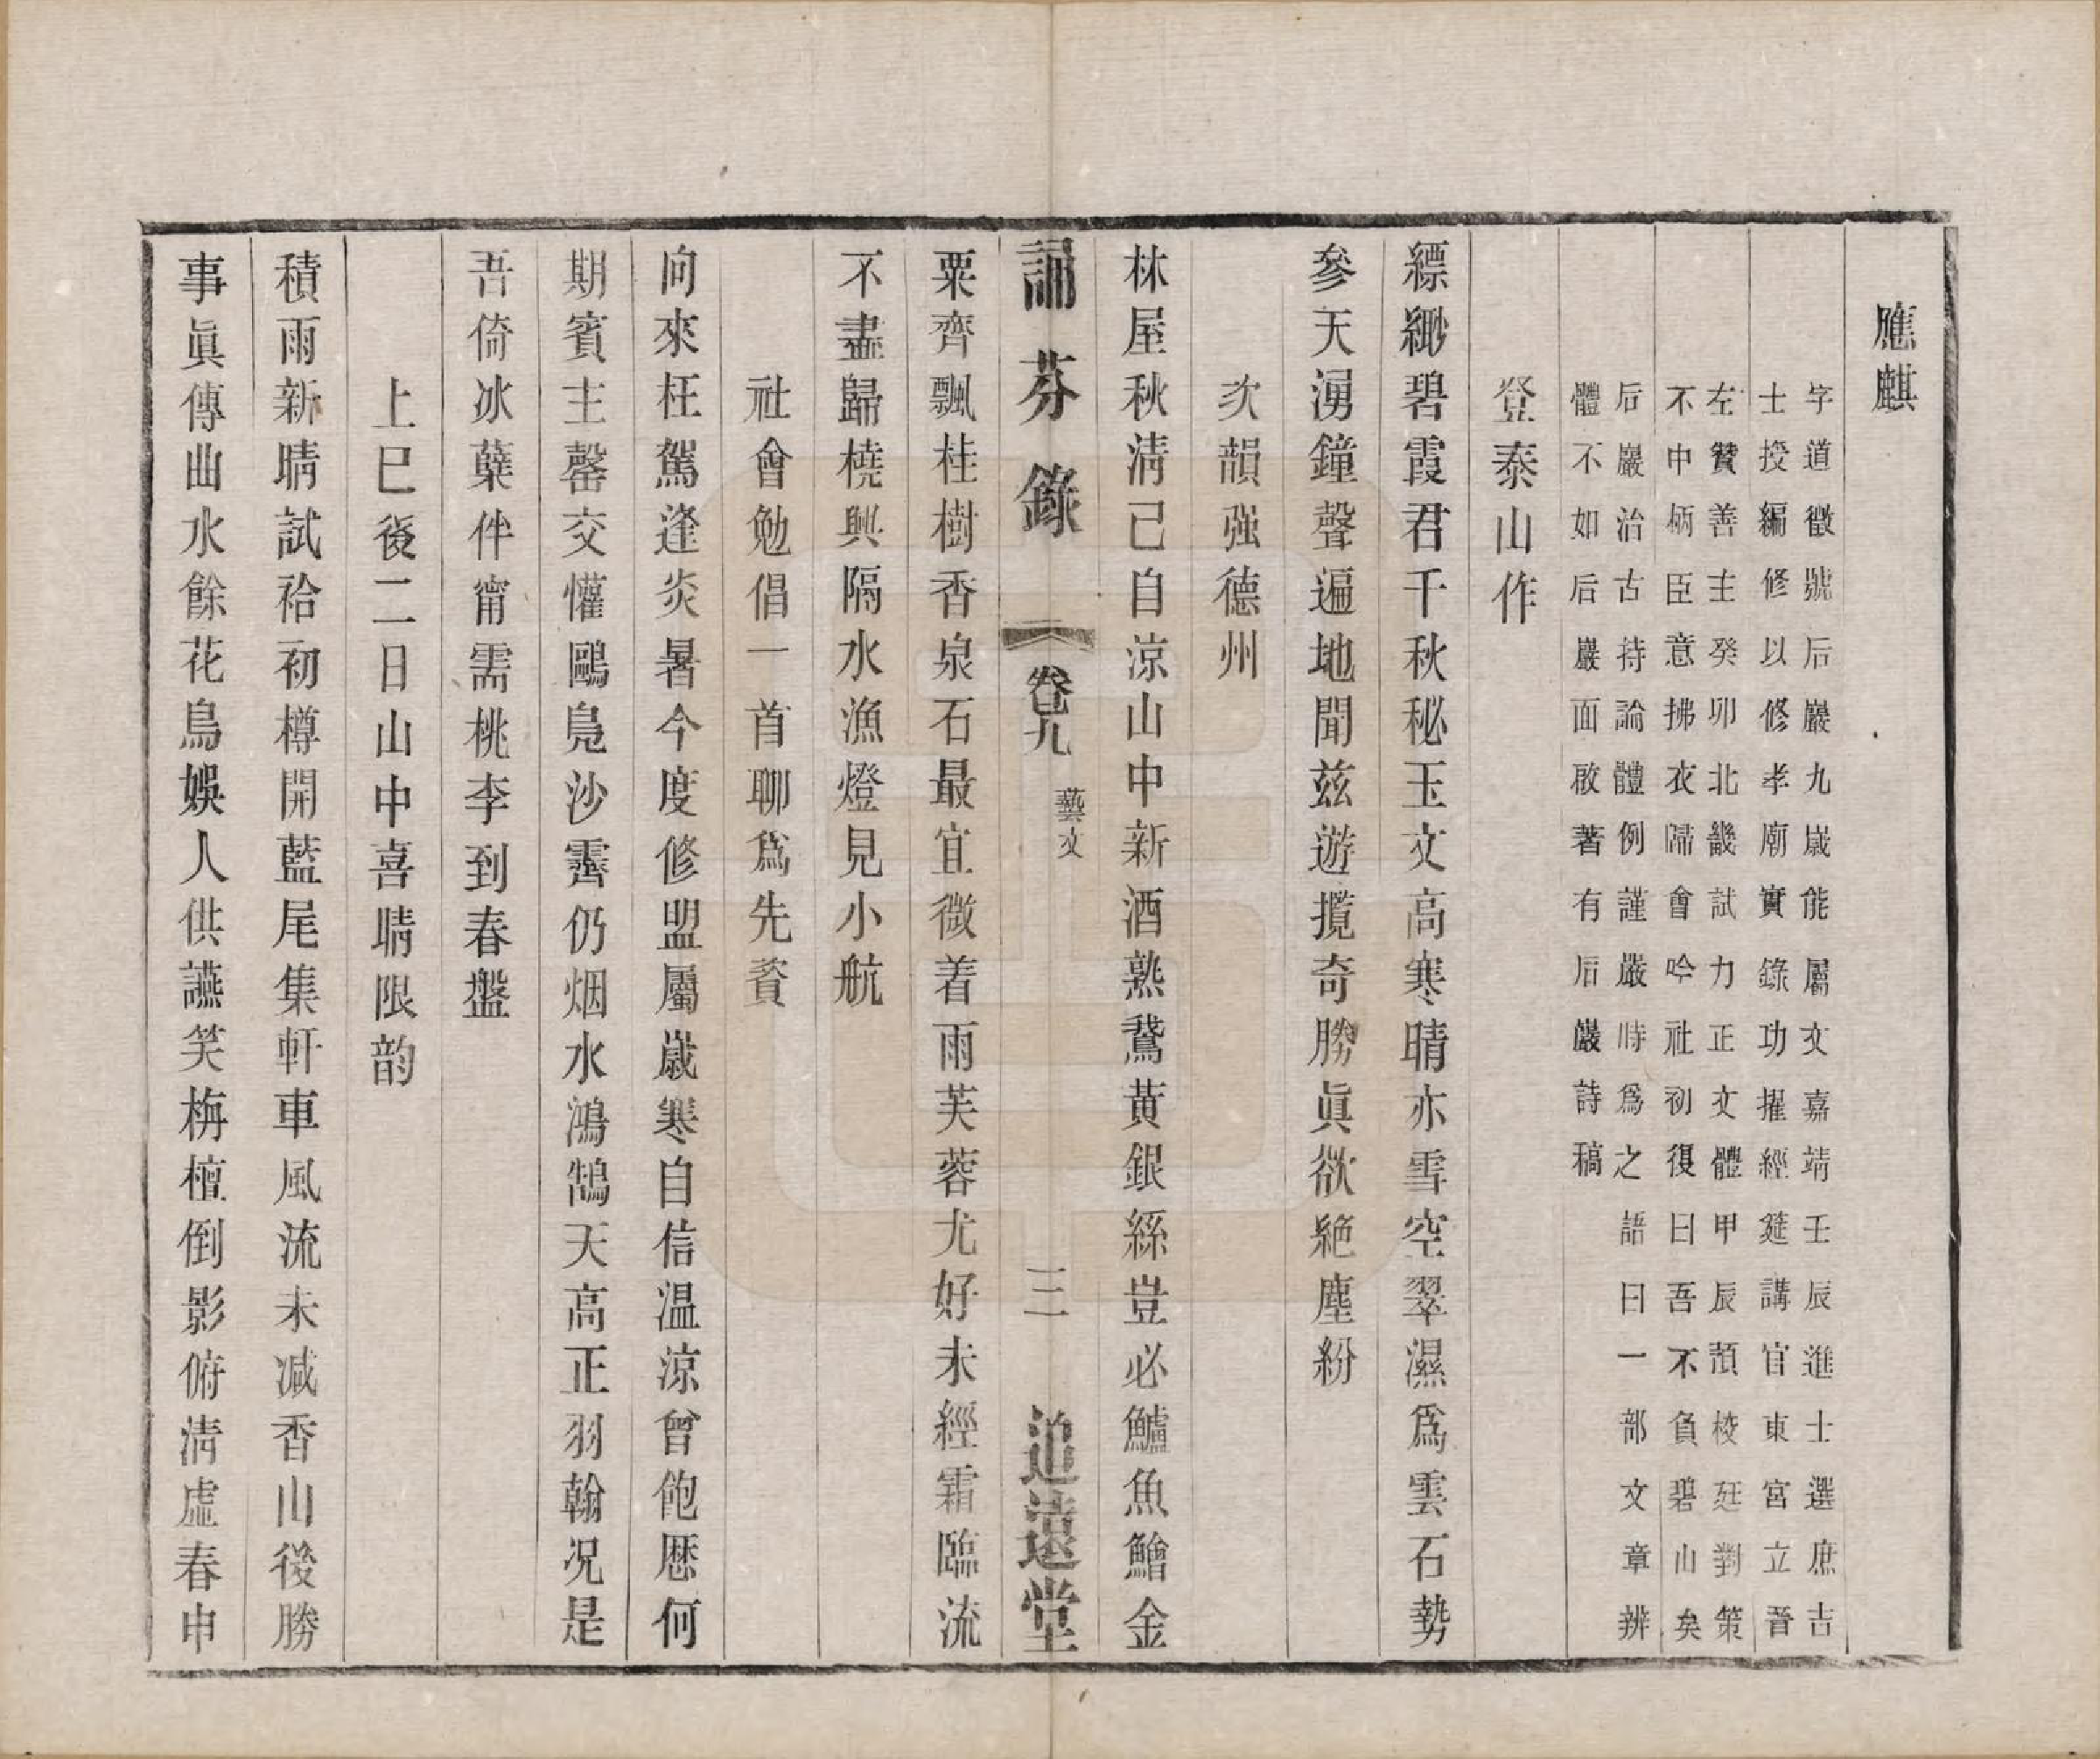 應麒
字道徵號后巖九歲能屬文嘉靖壬辰進士選庶吉
士授編修以修孝廟實錄功擢經筵講官東宮立晉
左贊善主癸卯北畿試力正文體甲辰預校廷對策
不中柄臣意拂衣歸會吟社初復曰吾不負碧山矣
后巖治古持論體例謹嚴時爲之語曰一部文章辨
體不如后巖面啟著有后巖詩稿
登泰山作
縹緲碧霞君千秋秘玉文高寒晴亦雪空翠濕爲雲石勢
參天湧鐘聲遍地聞玆遊攬奇勝眞欲絶塵紛
次韻强德州
林屋秋淸己自涼山中新酒熟鵞黃銀絲豈必鱸魚鱠金
誦芬錄
卷九
藝文
三
追遠堂
粟齊飄桂樹香泉石最宜微着雨芙蓉尤好未經霜臨流
不盡歸橈興隔水漁燈見小航
社會勉倡一首聊爲先資
向來枉駕逢炎暑今度修盟屬歲寒自信温涼曾飽歷何
期賓主罄交懽鷗鳧沙霽仍烟水鴻鵠天高正羽翰况是
吾倚冰蘗伴甯需桃李到春盤
上巳後二日山中喜晴限韵
積雨新晴試袷初樽開藍尾集軒車風流未减香山後勝
事眞傳曲水餘花鳥娛人供讌笑栴檀倒影俯淸虛春申